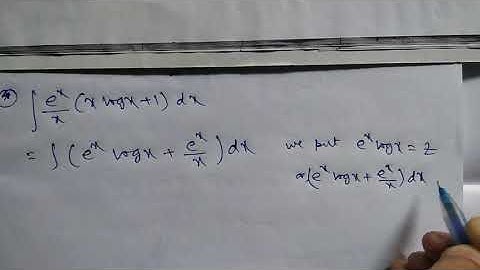 ∫ e^x/x (x logx + 1) dx
= ∫ (e^x logx + e^x/x) dx we put e^x logx = z
(e^x logx + e^x/x) dx